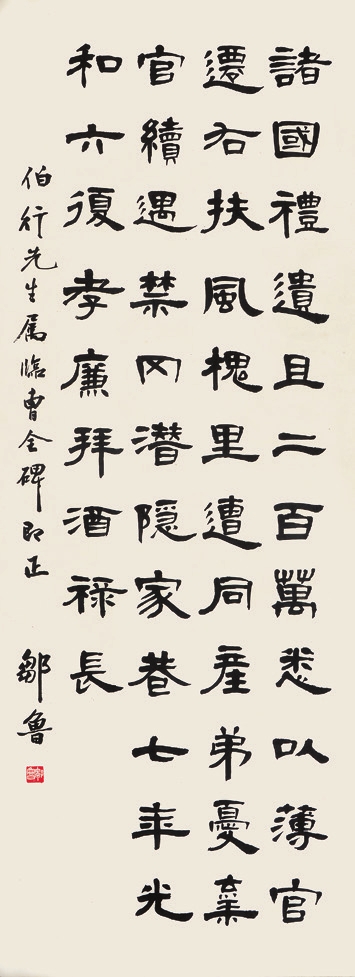 諸國禮遺且二百萬悉以薄官
遷右扶風槐里遭同産弟憂棄
官續遇禁冈潛隱家巷七年光
和六復孝廉拜酒禄長
伯行先生属臨曹全碑即正 鄒魯